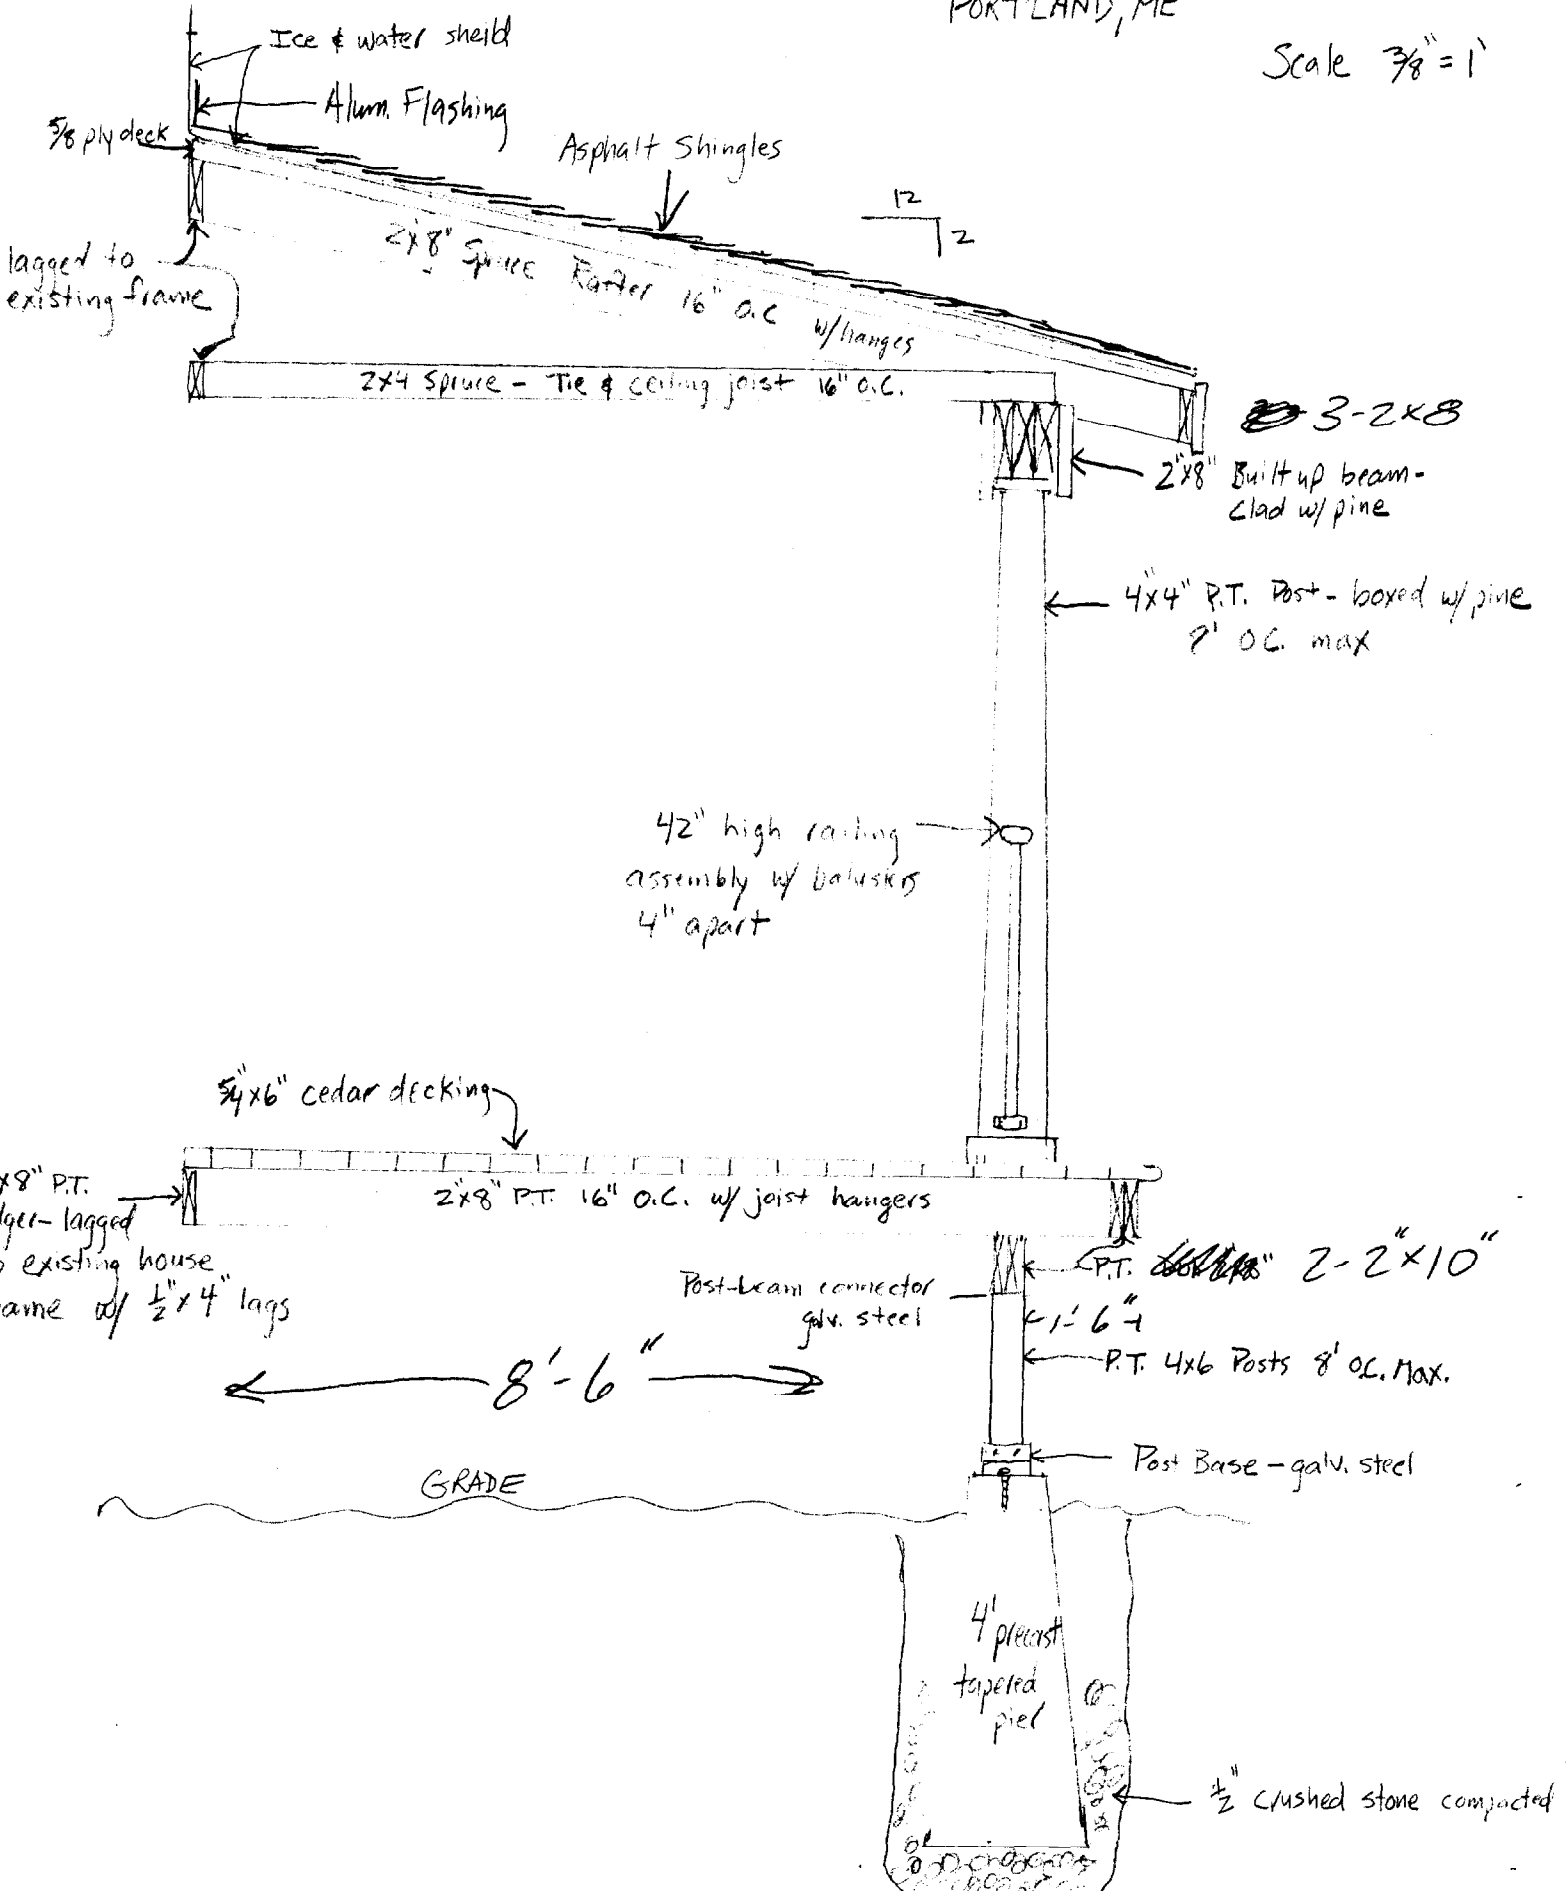 PORTLAND, ME
Scale 3/8" = 1'
Ice & water sheild
Alum. Flashing
5/8 ply deck
Asphalt Shingles
12
2
lagged to
existing frame
2"x8" Spruce Rafter 16" O.C w/hanges
2x4 Spruce - Tie & ceiling joist 16" O.C.
3-2x8
2"x8" Built up beam-
clad w/ pine
4"x4" P.T. Post - boxed w/ pine
O.C. max
42" high railing
assembly w/ balusters
4" apart
5/4"x6" cedar decking
x8" P.T.
dger- lagged
existing house
ame w/ 1/2"x4" lags
2"x8" P.T. 16" O.C. w/ joist hangers
P.T. 2-2"x10"
Post-beam connector
galv. steel
1'-6"
P.T. 4x6 Posts 8' O.C. Max.
8'-6"
Post Base - galv. steel
GRADE
4' precast
tapered
pier
1/2" crushed stone compacted